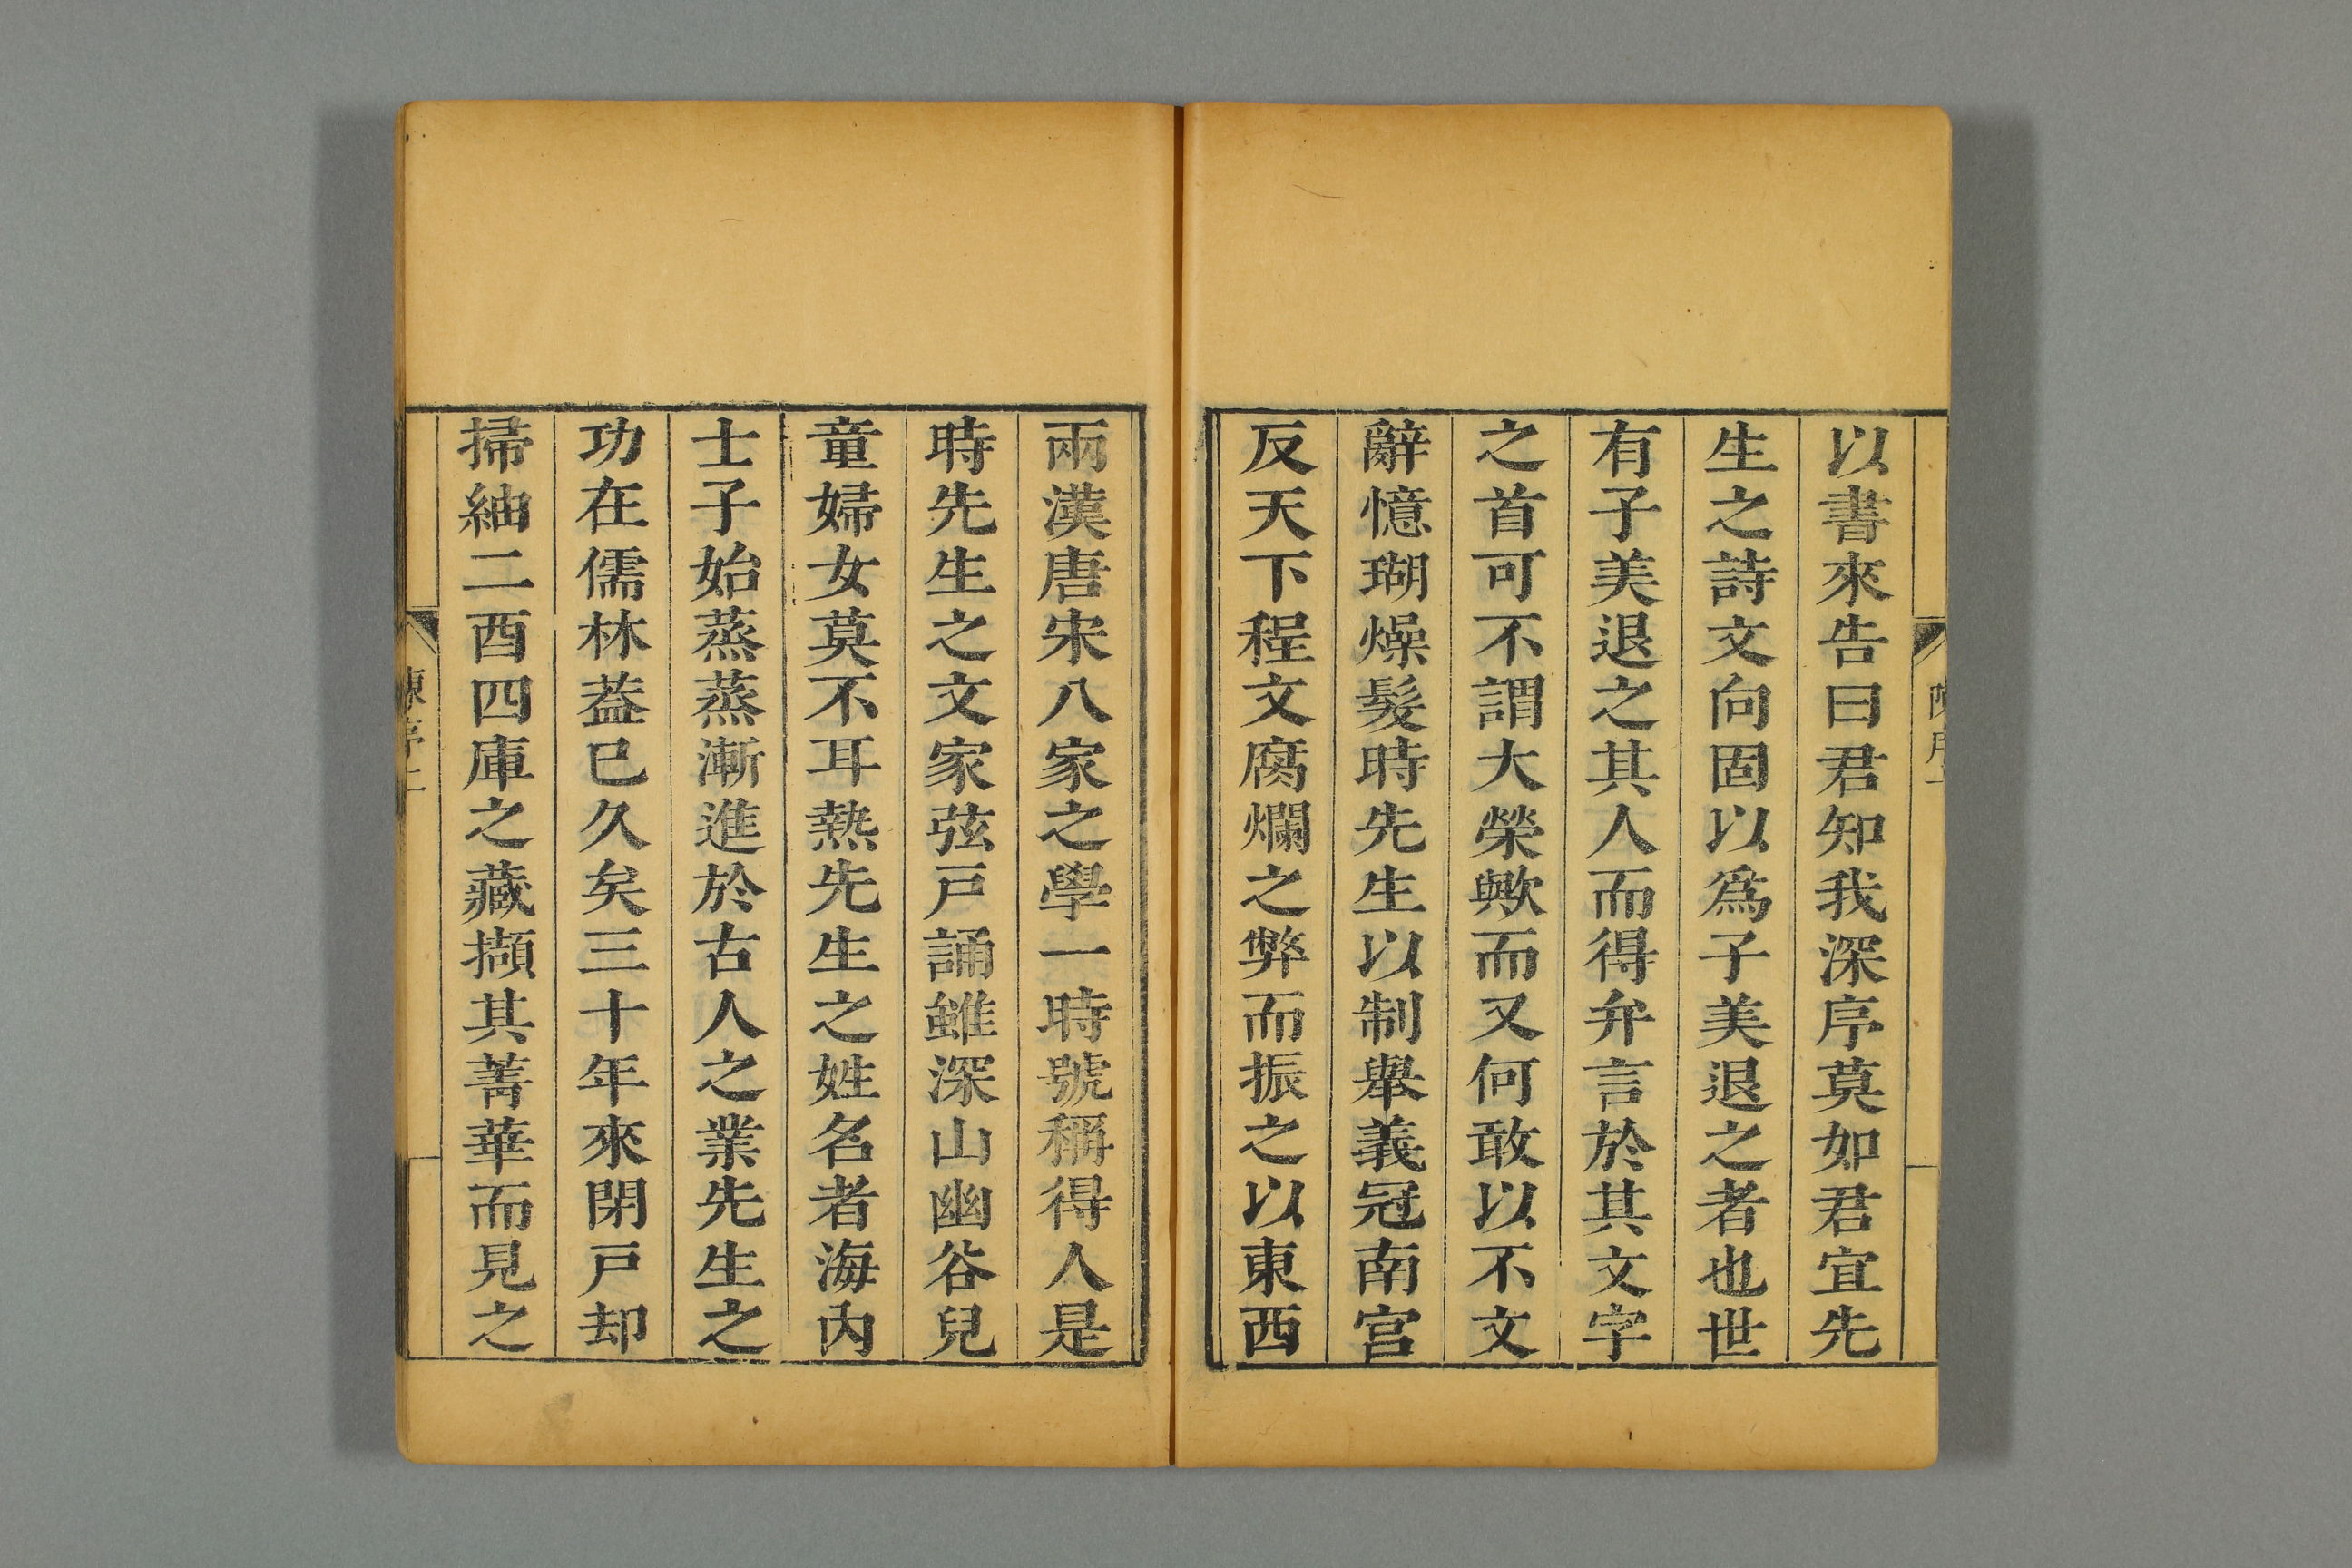 以書來告曰君知我深序莫如君宜先
生之詩文向固以爲子美退之者也世
有子美退之其人而得弁言於其文字
之首可不謂大榮歟而又何敢以不文
辭憶瑚燥髮時先生以制舉義冠南宮
反天下程文腐爛之弊而振之以東西
兩漢唐宋八家之學一時號稱得人是
時先生之文家弦戸誦雖深山幽谷兒
童婦女莫不耳熱先生之姓名者海內
士子始蒸蒸漸進於古人之業先生之
功在儒林葢已久矣三十年來閉戸却
掃紬二酉四庫之藏擷其菁華而見之
陳序二